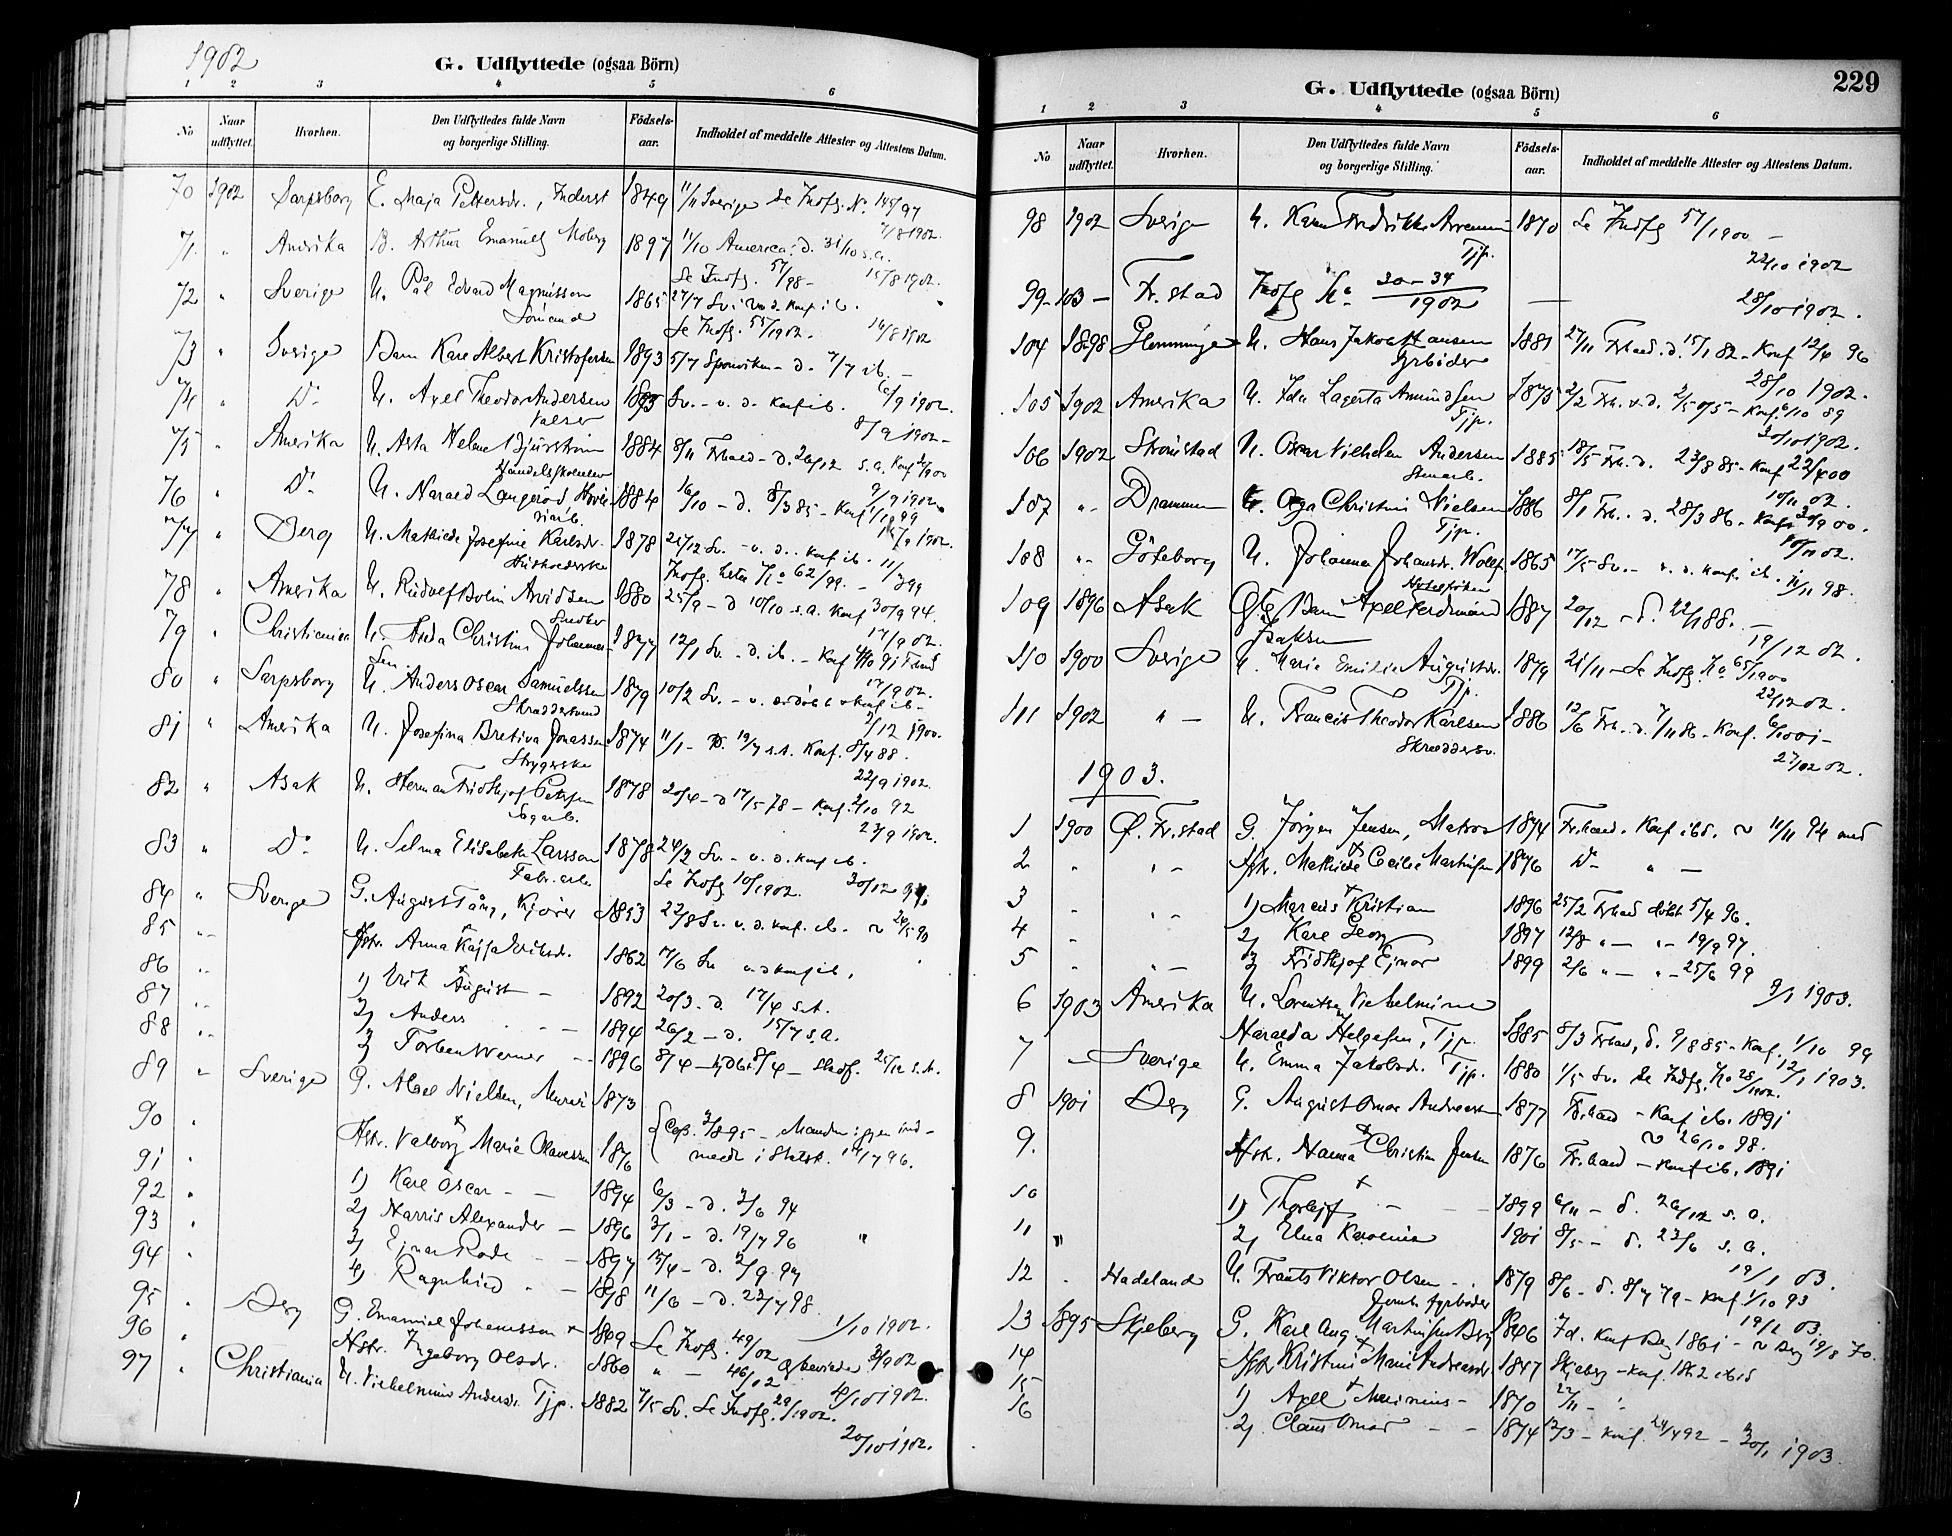 1902
G. Udflyttede (ogsaa Börn)
1 2 3 4 5 6
No Naar udflyttet. Hvorhen. Den Udflyttedes fulde Navn og borgerlige Stilling. Födsels-aar. Indholdet af meddelte Attester og Attestens Datum.
70 1902 Sarpsborg E. Maja Pettersdr., Inderst 1849 11/11 Sverige Se Indfg. No. 145/97
7/8 1902.
71 " Amerika B. Arthur Emanuel Moberg 1897 11/10 America: d. 31/10 s.a.
Se Indfg. 57/98 - 15/8 1902.
72 " Sverige U. Pål Edvard Magnussen 1865 27/7 Sv. i v. d. Konf ib.
Sömand Se Indfg. 55/1902. 16/8 1902
73 " Sverige Barn Kare Albert Kristofersen 1893 5/7 Sponviken - d. 7/7 ib. -
74 " Do U. Axel Theodor Andersen 1883 Sv. - v. d. Konf ib. 6/9 1902.
Valser 8/9 1902 -
75 " Amerika U. Asta Helene Bjurström 1884 8/11 Frhald - d. 26/12 s.a. Konf
76 " Do U. Harald Langeröd 1884 16/10 - d. 8/3 85 - Konf 1/10 99
77 " Berg U. Mathilde Josefine Karlsdr. 1878 21/12 Sv. - v. d. Konf ib.
Indfg. No 62/99. -
78 " Amerika U. Rudolf Bolin Arvidsen 1880 25/9 - d 10/10 s.a. Konf 30/9 94.
Snekr 17/9 02.
79 " Christiania U. Hulda Christine Johannes- 1877 12/1 Sv. - d. ib. - Konf
sen 17/9 02.
80 " Sarpsborg U. Anders Oscar Samuelssen 1879 10/2 Sv. - v. ib -
Skræddersvend 3/12 1900.
81 " Amerika U. Josefina Bretiva Jonassen 1874 11/1 - d. 19/7 s.a. Konf. 8/4 88.
Strygerske 22/9 1902.
82 " Asak U. Herman Fridthjof Petersen 1878 20/4 - d 17/5 78 - Konf. 2/10 92
Sagarb. 27/9 1902.
83 " Do U. Selma Elisabeth Larsson 1878 24/2 Sv. - v. d. Konf ib.
Fabr. arb. Se Indfg 10/1902. 30/12
84 " Sverige G. August Tång, Kjörer 1853 22/8 Sv. v. d. Konf. ib. ~ 26/5 90
85 " Hstr. Anna Kajsa Eriksdr. 1862 17/6 Sv v. d Konf ib.
86 " 1) Erik August - 1892 20/3 - d. 17/4 s.a.
87 " 2) Anders - 1894 26/2 - d. 15/4 s.a.
88 " 3) Torben Werner - 1896 8/4 - 8/4 - Stadf. 25/12 s.a.
89 " Sverige G. Abel Nielsen, Murer 1873
90 " Hstr. Valborg Marie Olavessen 1876 Cop. 3/8 95 - Manden igjen ind-
meldt i Statsk. 14/7 96.
91 " 1) Kare Oscar - - 1894 6/3 - d. 3/6 94
92 " 2) Harris Alexander - 1896 3/1 - d. 19/4 96
93 " 3) Ejnar Rode - 1897 15/4 - d. 2/9 97
94 " 4) Ragnhild - - 1898 11/6 - d. 23/7 98.
1/10 1902.
95 " Berg G. Emanuel Johanssen 1869 Se Indfg. 49/02
96 " Hstr. Ingeborg Olsdr. 1860 " - 46/02
4/10 1902.
97 " Christiania U. Vilhelmine Andersdr. Tjp. 1882 7/5 Sv. Se Indfg. 29/1902.
20/10 1902.
G. Udflyttede (ogsaa Börn)
229
1 2 3 4 5 6
No Naar udflyttet. Hvorhen. Den Udflyttedes fulde Navn og borgerlige Stilling. Födsels-aar. Indholdet af meddelte Attester og Attestens Datum.
98 1902 Sverige U. Karen Fredrikke Arvesen 1870 Se Indfg 57/1900 -
Tjp. 22/10 1902
99 - 103 - Fr.stad Indfg No 30-34/1902 - 28/10 1902.
104 1898 Glemminge U. Hans Jakob Hansen 1881 27/11 Frhald. d. 15/1 82 - Konf 12/4 96
Fyrböder 28/10 1902.
105 1902 Amerika U. Ida Lagerta Amundsen 1875 2/2 Frh. d. 2/5 75 - Konf. 6/10 89
Tjp. 30/10 1902.
106 1902 Strömstad U. Oscar Vilhelm Andersen 1885 18/5 Frh. d. 23/8 85 - Konf 22/4 00
Stenarb. 10/11 02.
107 " - Drammen U. Olga Christine Nielsen 1886 8/1 Frh. d. 28/3 86. Konf. 30/9 00.
Tjp. 10/11 02.
108 " - Göteborg U. Johanna Johansdr. Wolff 1865 17/5 Sv. - v. d. Konf. ib. 11/11 98.
109 1896 Asak Barn Axel Ferdinand 1887 20/12 - d. 22/1 88. -
Isaksen 19/12 02.
110 1900 Sverige U. Marie Emilie Augustdr. 1879 21/11 - Se Indfg. No 65/1900
Tjp. 22/12 02.
111 1902 " - U. Francis Theodor Karlsen 1886 12/6 Frh. d. 7/11 86 - Konf. 6/10 01 -
Skræddersv. 27/12 02.
1903.
1 1900 Ø. Fr.stad G. Jörgen Jensen, Matros 1874 Fr.hald. Konf ibd. ~ 11/11 94 med
2 " " - Hstr. Mathilde Cecilie Martinsen 1876 Do " -
3 " " - 1) Marcus Kristian 1896 25/2 Frhald döbt 5/4 96.
4 " 2) Kare Georg 1897 12/8 " - " - 19/9 97.
5 " " - 3) Fridthjof Ejnar 1899 2/6 " - " - 25/6 99
9/1 1903.
6 1903 Amerika U. Lorentse Vilhelmine
Haralda Helgesen, Tjp. 1885 8/3 Frhald, d. 9/8 85 - Konf. 1/10 99
7 - Sverige U. Emma Jakobsdr. Tjp. 1880 1/5 Sv. Se Indfg. No 28/1902. 12/1 1903.
8 1901 Berg G. August Omar Andreassen 1877 Fr.hald - Konf ib. 1891
~ 26/10 98.
9. Hstr. Hanna Christine Jensen 1876 Fr.hald - Konf ib. 1891
10 1) Thorleif - - 1899 6/11 - d. 26/12 s.a.
11 " 2) Elna Karoline 1901 8/5 - d. 23/6 s.a.
19/1 03.
12 " Hadeland U. Frants Viktor Olsen - 1879 8/6 - d. 8/7 79 - Konf. 1/10 93
Jernb. fyrböder 19/1 03.
13 1895 Skjeberg G. Karl Aug. Martinsen Berg 1846 Fd. Konf Berg 1861 - ~ Berg 19/8 70.
14 Hstr Kristine Marie Andreasdr. 1847 Skjeberg - Konf. 1862 ibid
15 1) Axel Marinius - 1870 22/11 - "
16 2) Claus Omar - - 1874 12/3 - Konf. 24/4 92 - 30/1 1903.